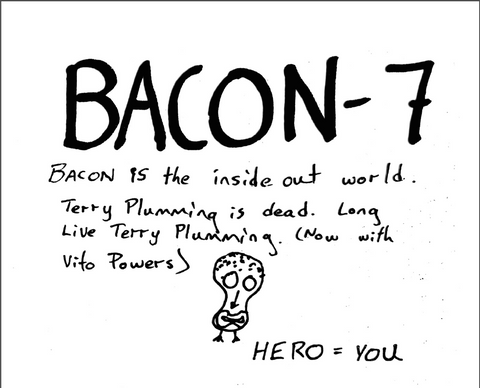 BACON-7
BACON is the inside out world.
Terry Plumming is dead. Long
Live Terry Plumming. (Now with
Vito Powers)
HERO = YOU